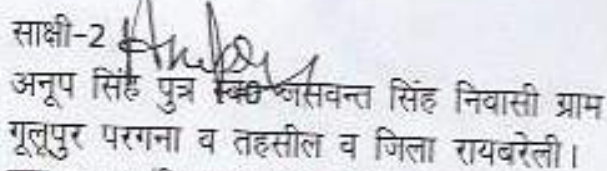 साक्षी-2
अनूप सिंह पुत्र स्व0 जसवन्त सिंह निवासी ग्राम
गूलूपुर परगना व तहसील व जिला रायबरेली।